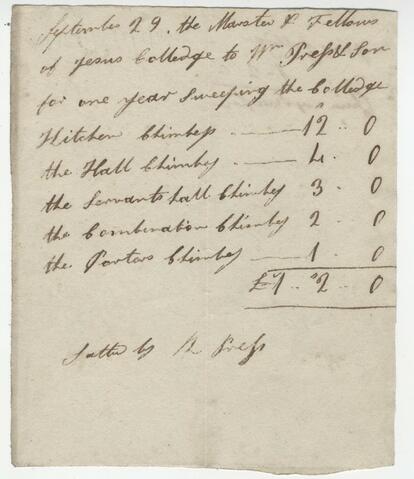 September 29. the Marster & Fellows
of Jesus Colledge to Wm Press & Son
for one year Sweeping the Colledge
Kitchen Chimbeys 12 .. 0
the Hall Chimbey 4 . 0
the Servants hall Chimbey 3 . 0
the Combination Chimbey 2 . 0
the Portors Chimbey 1 . 0
£1 .. 2 .. 0
by Press